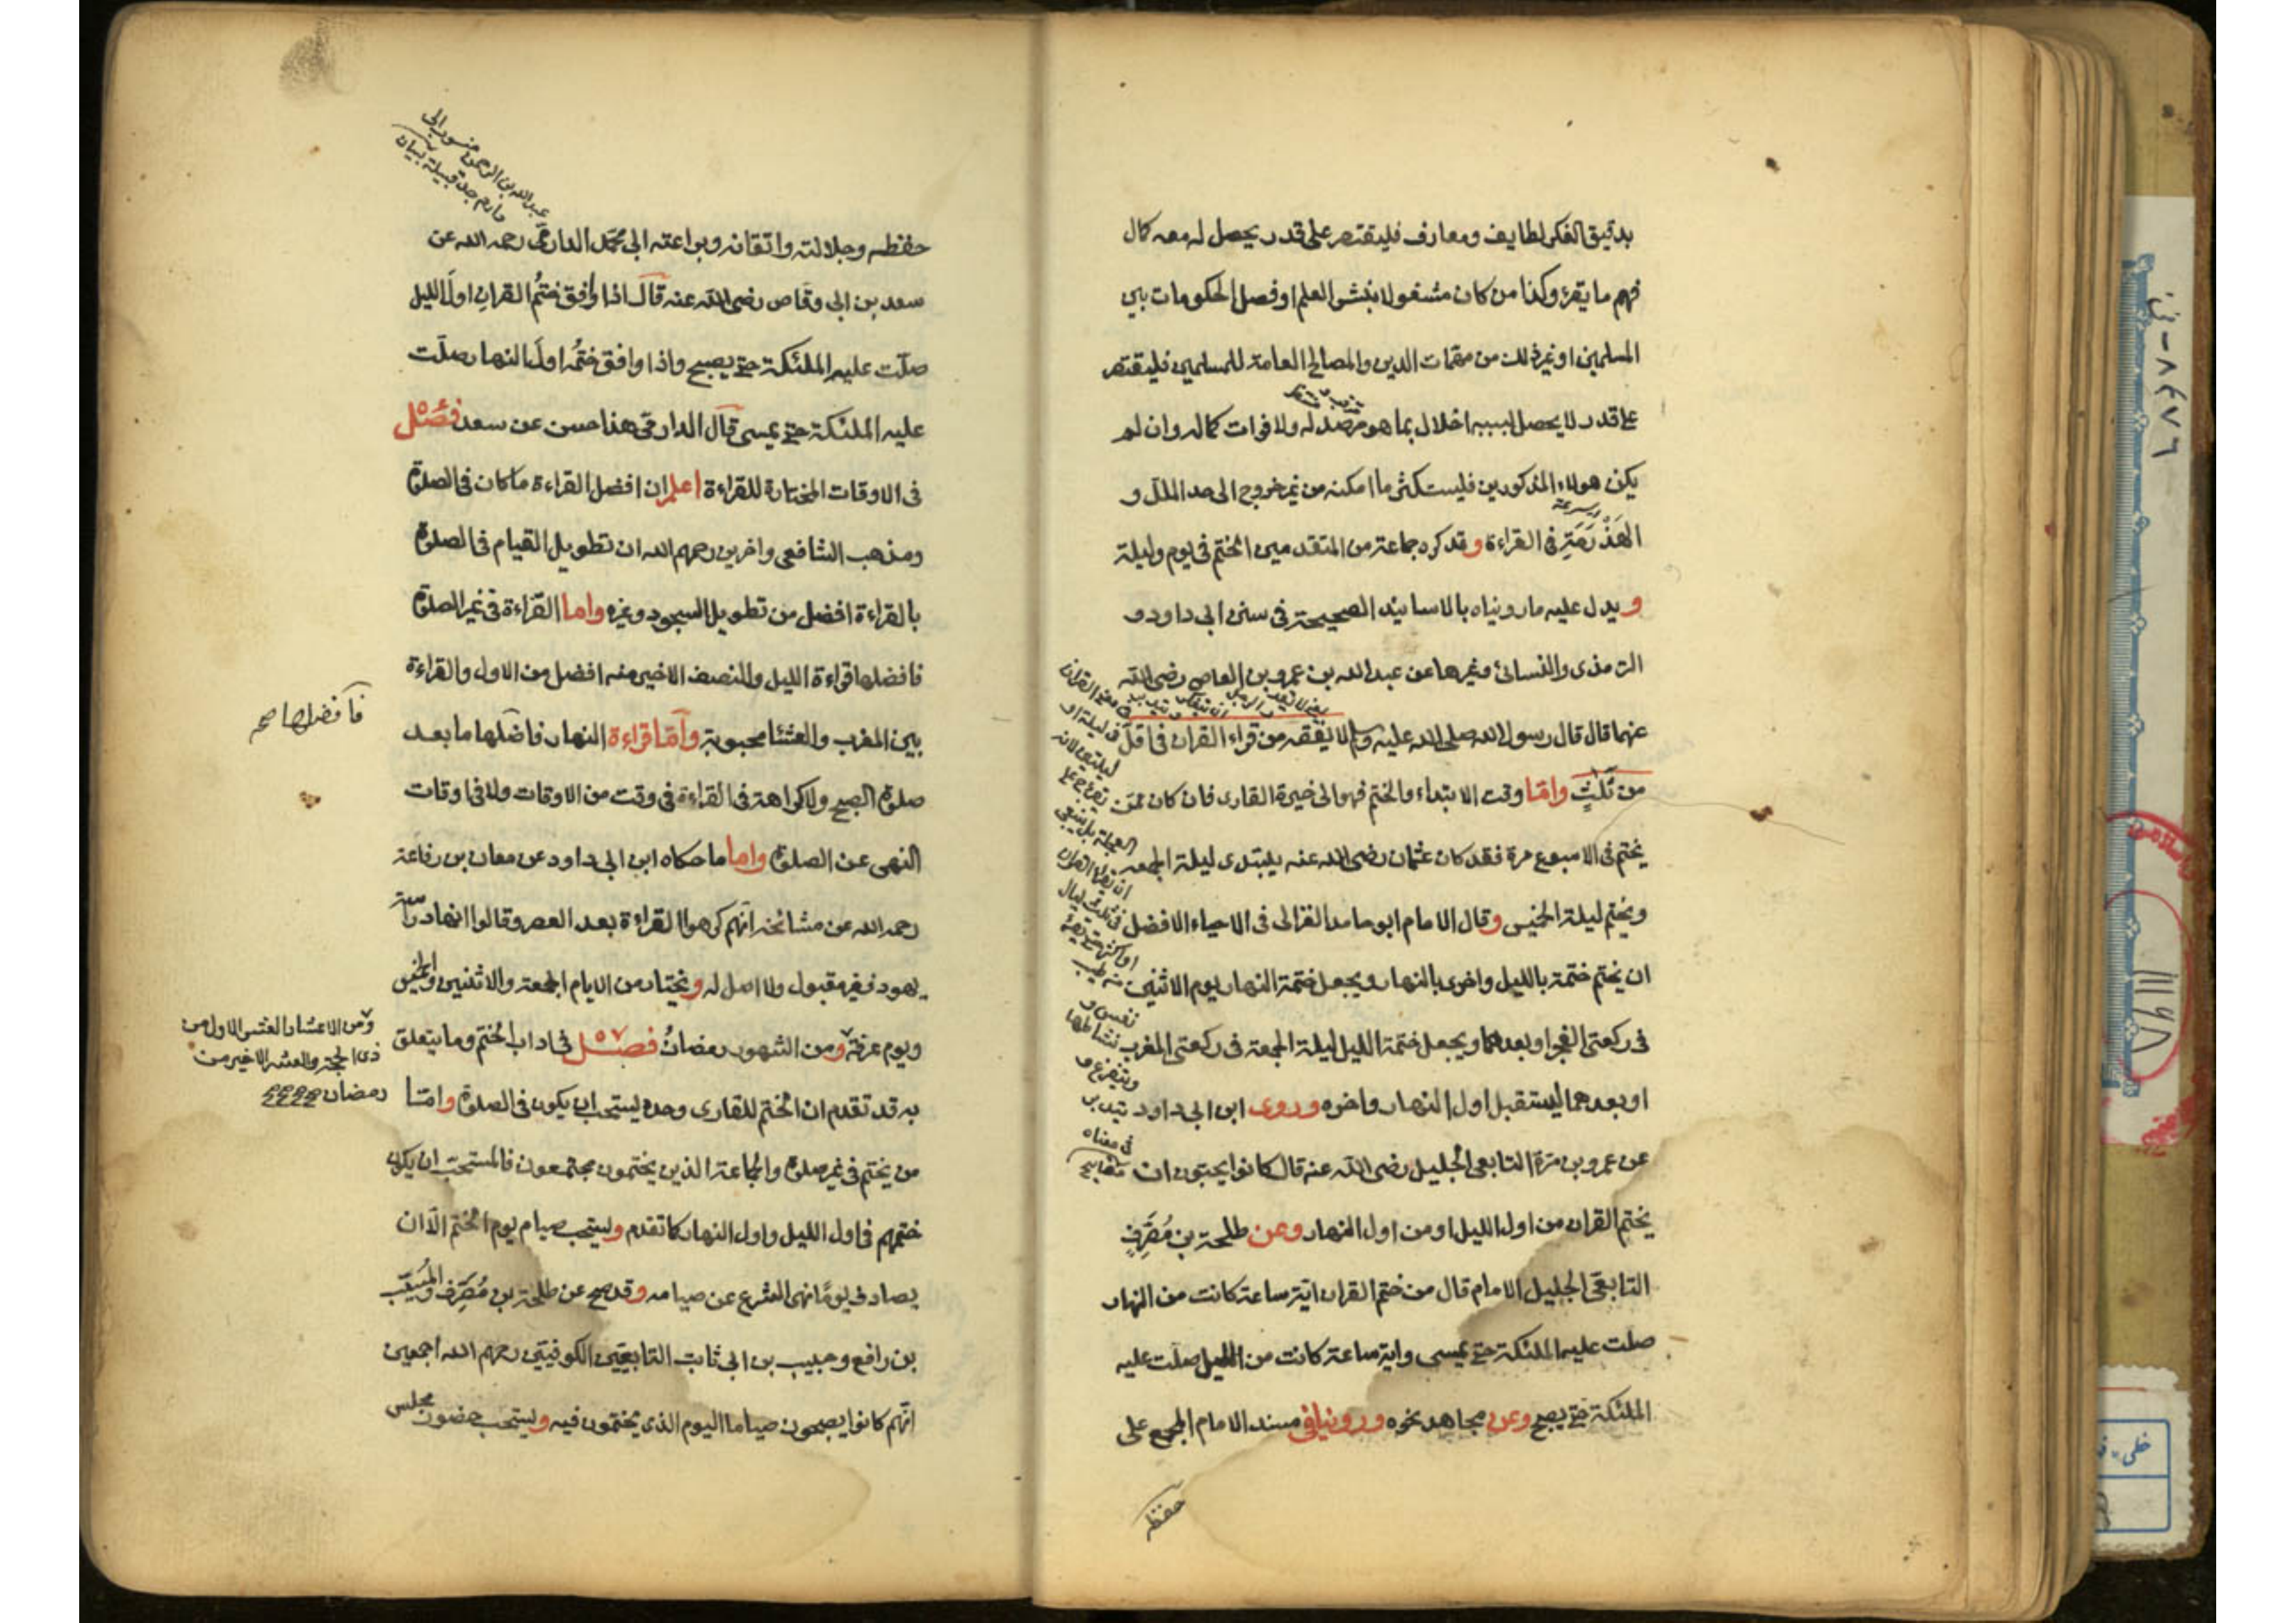 بدقيق الفكر لطايف ومعارف فليقتصر على قدر يحصل له معه كمال
فهم ما يقرء وكذا من كان مشغولا بنشر العلم او فصل الحكومات بين
المسلمين او غير ذلك من مهمات الدين والمصالح العامة للمسلمين فليقتصر
على قدر لا يحصل بسببه اخلال بما هو مرصد له ولا فوات كماله وان لم
يكن هولاء المذكورين فليستكثر ما امكنه من غير خروج الى حد الملل و
بسرعة
الهَذْرَمَةِ في القراءة وقد كره جماعة من المتقدمين الختم في يوم وليلة
ويدل عليه ما رويناه بالاسانيد الصحيحة في سنن ابى داود و
الترمذى والنسائى وغيرها عن عبد الله بن عمرو بن العاص رضى الله
عنهما قال قال رسول الله صلى الله عليه وسلم لا يفقه من قراء القران في اقل
من ثلثٍ واما وقت الابتداء والختم فهو الى خيرة القارى فان كان ممن
يختم في الاسبوع مرة فقد كان عثمان رضى الله عنه يبتدى ليلة الجمعه
ويختم ليلة الخميس وقال الامام ابو حامد الغزالى فى الاحياء الافضل
ان يختم ختمة بالليل واخرى بالنهار ويجعل ختمة النهار يوم الاثنين
في ركعتى الفجر او بعدهما ويجعل ختمة الليل ليلة الجمعة فى ركعتى المغرب
او بعدهما ليستقبل اول النهار واخره وروى ابن ابى داود
عن عمرو بن مرة التابعى الجليل رضى الله عنه قال كانوا يحبون ان
يختم القران من اول الليل او من اول النهار وعن طلحة بن مُصَرِّفٍ
التابعى الجليل الامام قال من ختم القران اية ساعة كانت من النهار
صلت عليه الملئكة حتى يمسى واية ساعة كانت من الليل صلت عليه
الملئكة حتى يصبح وعن مجاهد نحوه وروينا فى مسند الامام المجمع على
حفظه
ليلتين لانه
العجلة بل ينبغى
ان يقراء القران
فى ثلث ليال
او اكثر حتى يقرء
من طيب
نفس و
نشاطها
ويتفرغ و
يتدبر
فى معناه
مفاتيح
عبد الله بن الرحمن منسوب الى
دارم جد قبيلة
حفظه وجلالته واتقانه وبراعته ابى محمد الدارمى رحمه الله عن
سعد بن ابى وقاص رضى الله عنه قال اذا وافق ختمُ القران اولَ الليل
صلّت عليه الملئكة حتى يصبح واذا وافق ختمُه اولَ النهار صلّت
عليه الملئكة حتى يمسى قال الدارمى هذا حسن عن سعد فصل
فى الاوقات المختارة للقراءة اعلم ان افضل القراءة ما كان فى الصلوة
ومذهب الشافعى واخرين رحمهم الله ان تطويل القيام فى الصلوة
بالقراءة افضل من تطويل السجود وغيره واما القراءة فى غير الصلوة
فافضلها قراءة الليل والنصف الاخير منه افضل من الاول والقراءة
بين المغرب والعشا محبوبة واما قراءة النهار فاضلها ما بعد
فافضلها صح
صلوة الصبح ولا كراهة فى القراءة فى وقت من الاوقات ولا فى اوقات
النهى عن الصلوة واما ما حكاه ابن ابى داود عن معان بن رفاعة
رحمه الله عن مشائخه انهم كرهوا القراءة بعد العصر وقالوا انها دراسة
يهود فغير مقبول ولا اصل له ويختار من الايام الجمعة والاثنين والخميس
ويوم عرفة ومن الشهور رمضانُ فصل فى اداب الختم وما يتعلق
ومن الاعشار العشر الاول من
ذى الحجة والعشر الاخير من
رمضان
به قد تقدم ان الختم للقارى وحده يستحب ان يكون فى الصلوة واما
من يختم فى غير صلوة والجماعة الذين يختمون مجتمعون فالمستحب ان يكون
ختمهم فى اول الليل واول النهار كما تقدم ويستحب صيام يوم الختم الّا ان
يصادف يومًا نهى الشرع عن صيامه وقد صح عن طلحة بن مُصَرِّف والمُسَيَّب
بن رافع وحبيب بن ابى ثابت التابعيّين الكوفيّين رحمهم الله اجمعين
انّهم كانوا يصبحون صياما اليوم الذى يختمون فيه ويستحب حضور مجلس